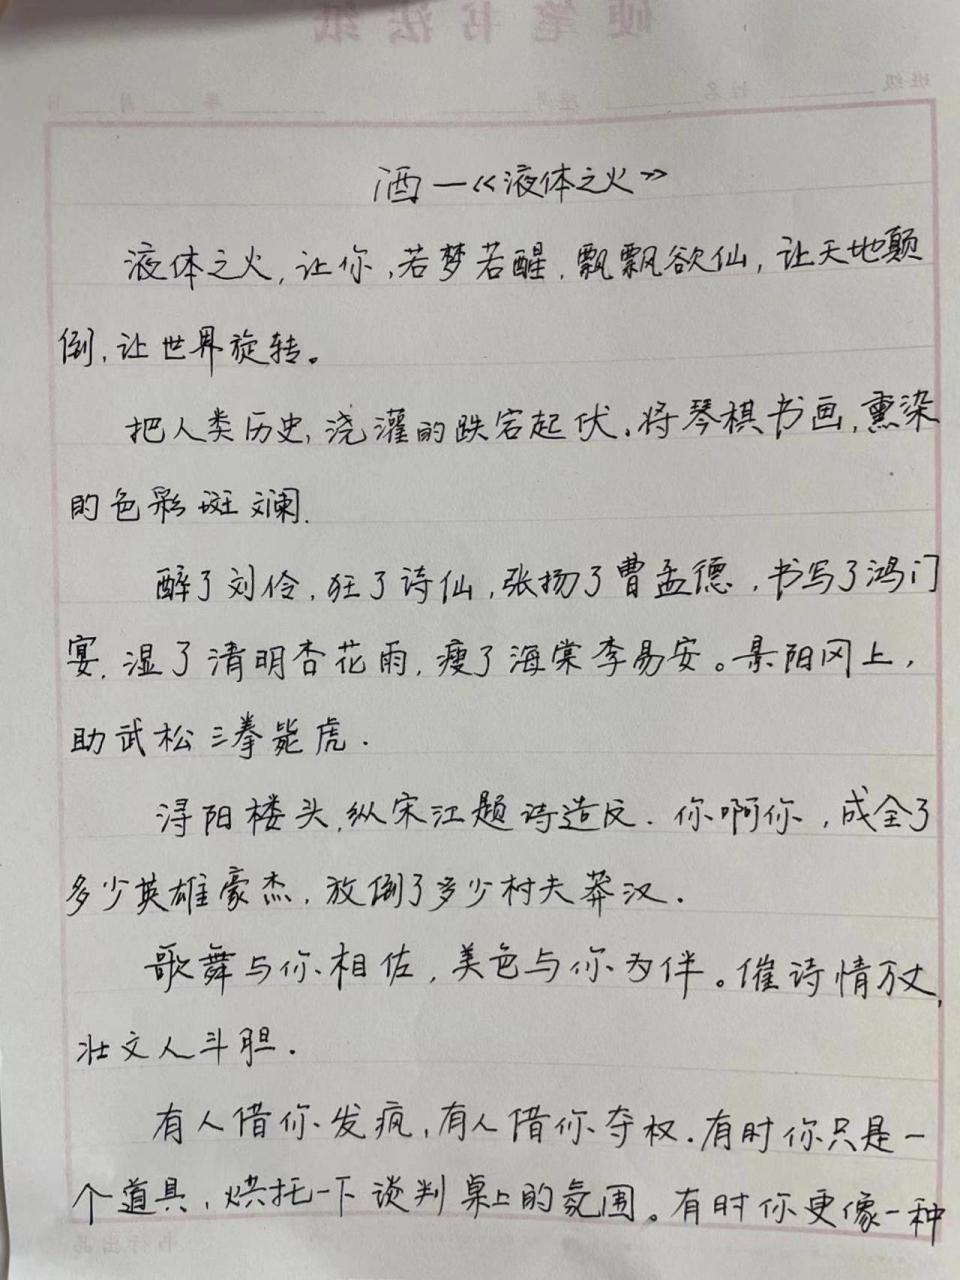 酒一《液体之火》
液体之火,让你,若梦若醒,飘飘欲仙,让天地颠
倒,让世界旋转。
把人类历史,浇灌的跌宕起伏,将琴棋书画,熏染
的色彩斑斓.
醉了刘伶,狂了诗仙,张扬了曹孟德,书写了鸿门
宴,湿了清明杏花雨,瘦了海棠李易安。景阳冈上,
助武松三拳毙虎.
浔阳楼头,纵宋江题诗造反.你啊你,成全了
多少英雄豪杰,放倒了多少村夫莽汉.
歌舞与你相佐,美色与你为伴。催诗情万丈,
壮文人斗胆.
有人借你发疯,有人借你夺权.有时你只是一
个道具,烘托一下谈判桌上的氛围。有时你更像一种